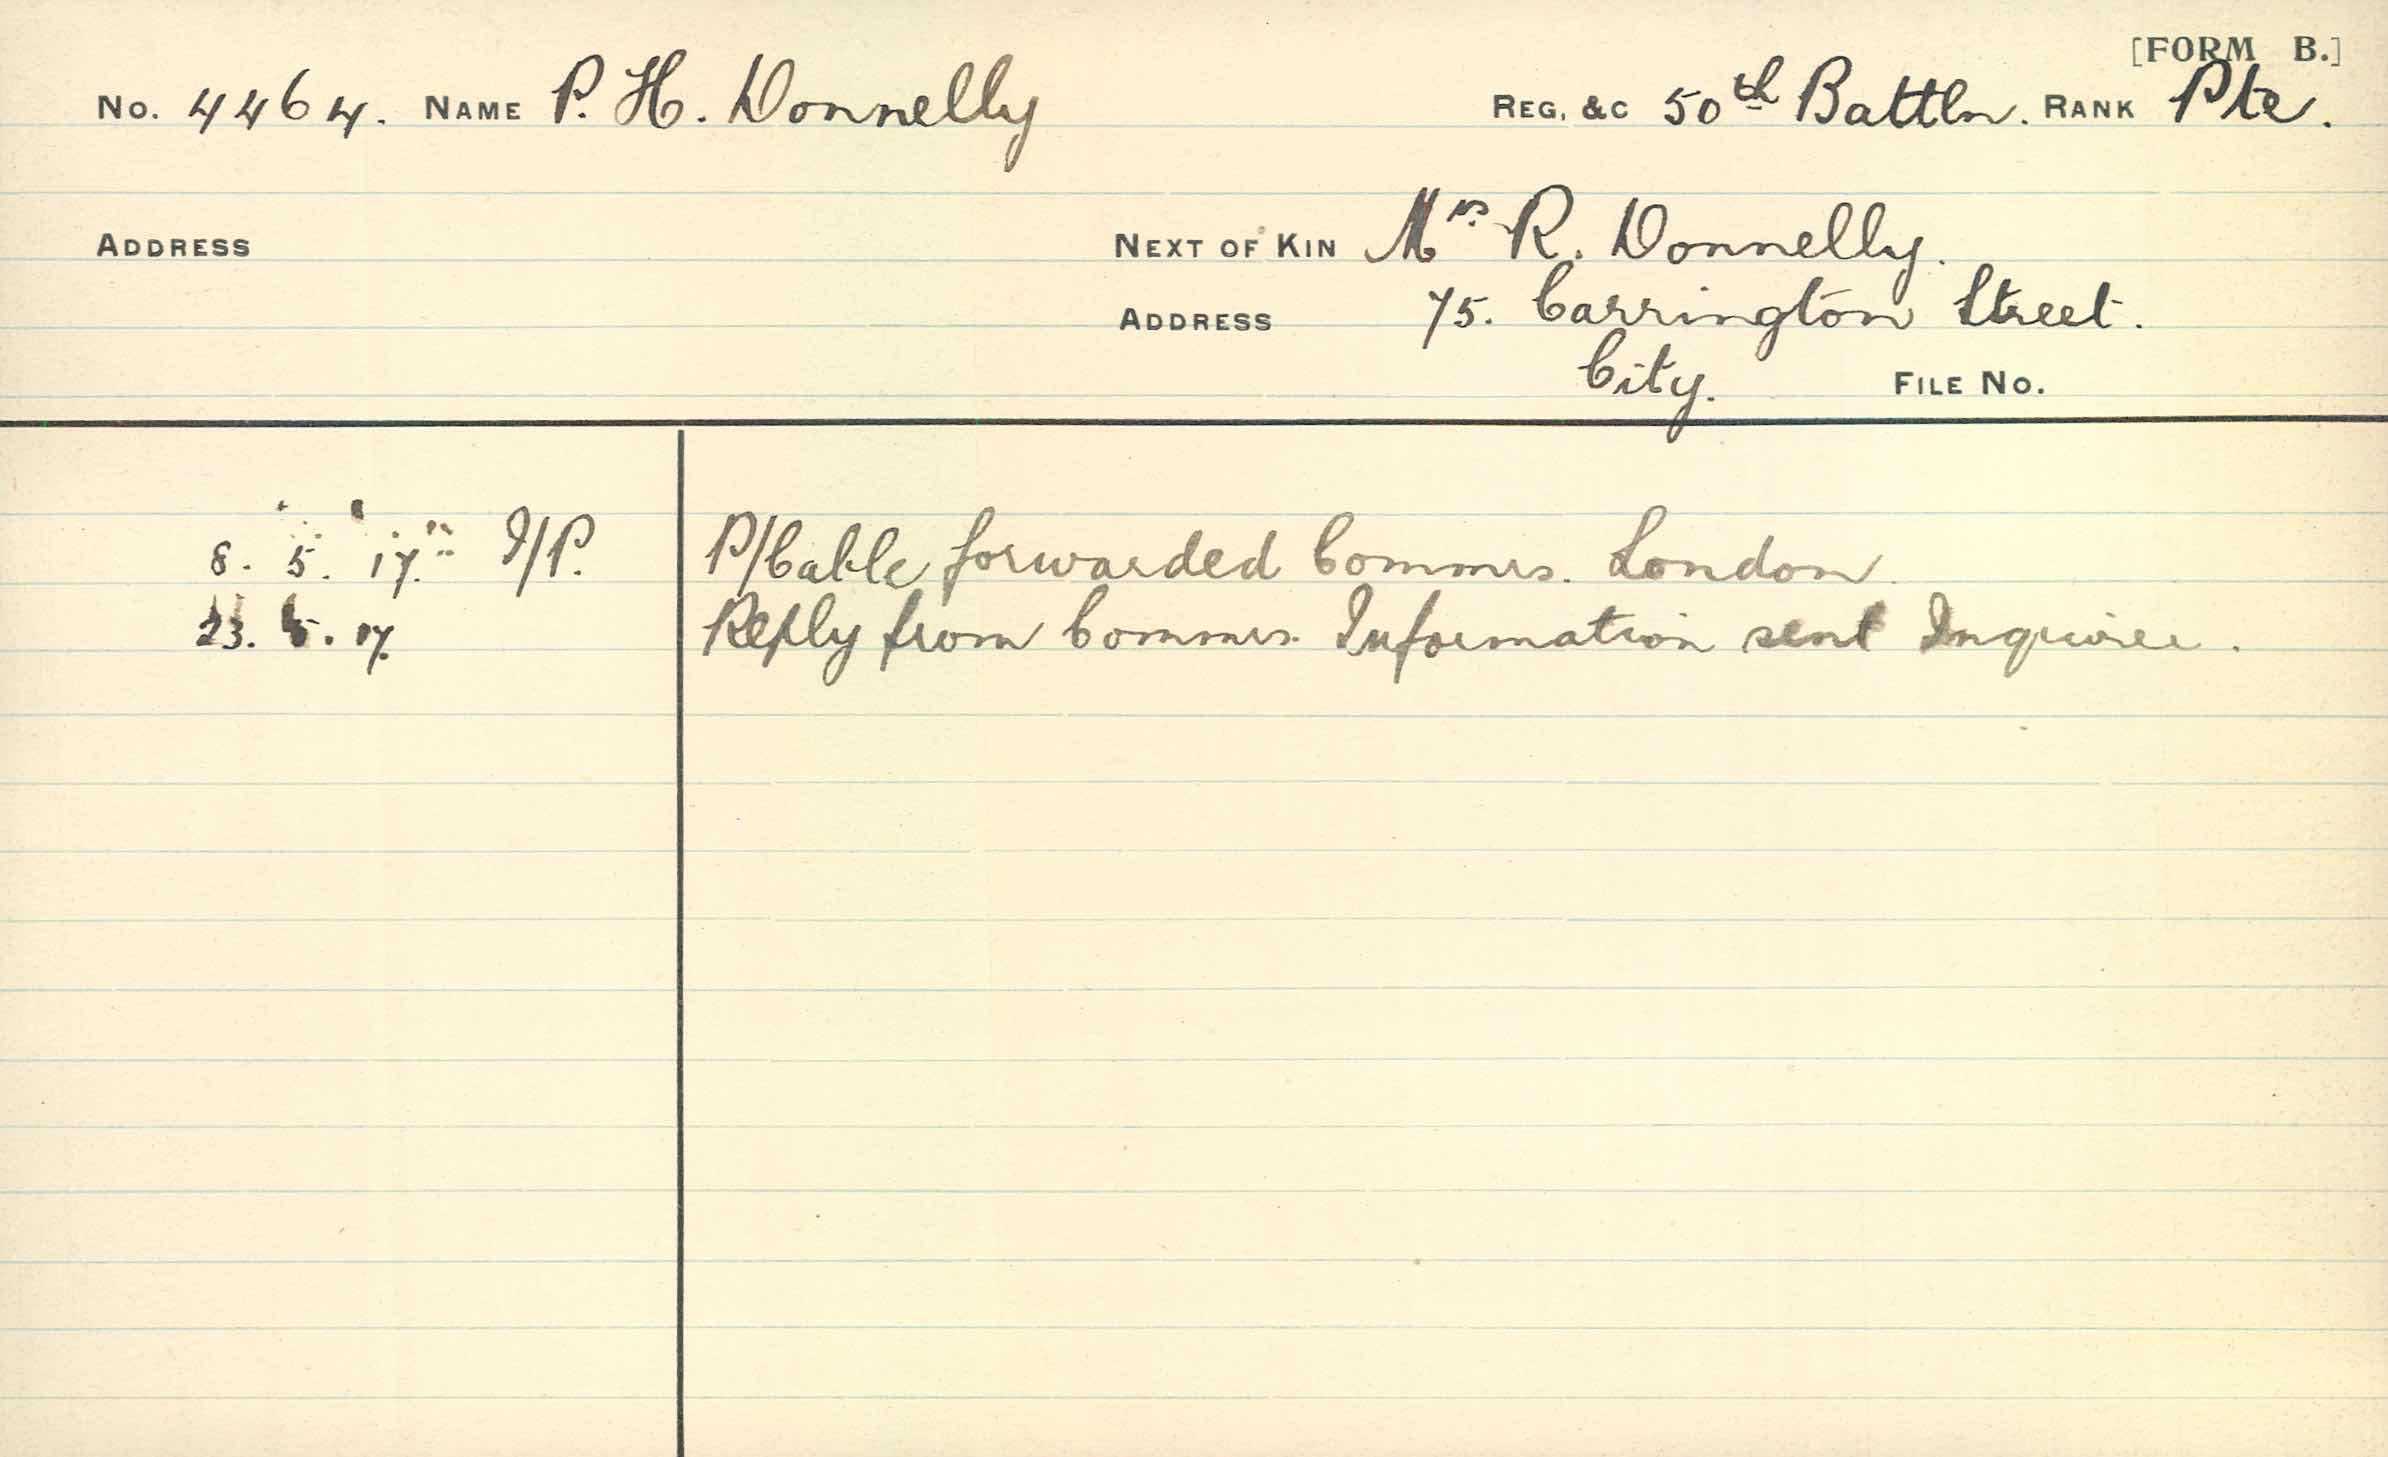 [FORM B.]
No. 4464. NAME P. H. Donnelly REG. &C 50th Battln. RANK Pte.
ADDRESS NEXT OF KIN Mrs R. Donnelly.
ADDRESS 75. Carrington Street.
City. FILE No.
8. 5. 17. I/P. P/Cable forwarded Commrs. London.
23. 5. 17. Reply from Commrs. Information sent Inquirer.